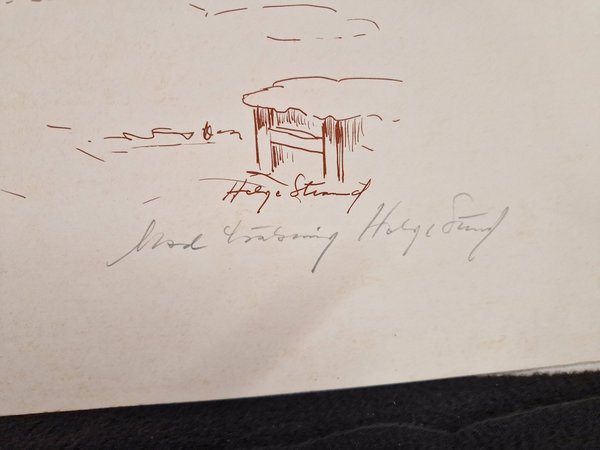 Helge Strand
Med Helge Strand